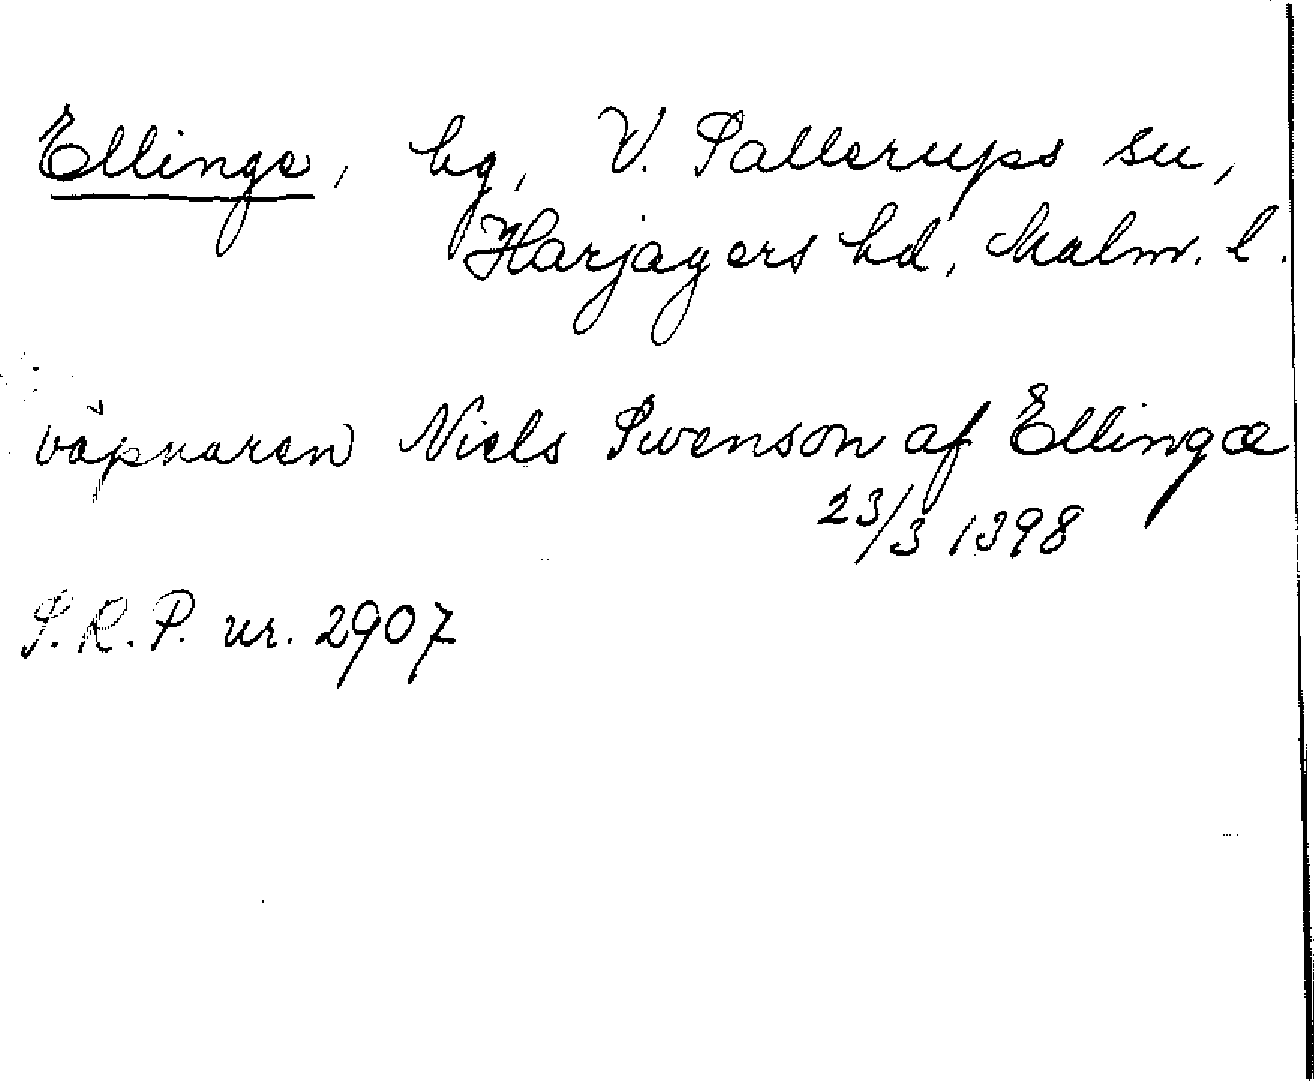 Ellinge, hg, V. Sallerups sn,
Harjagers hd, Malm. l.
väpnaren Niels Swenson af Ellingæ
23/3 1398
S.R.P. nr. 2907